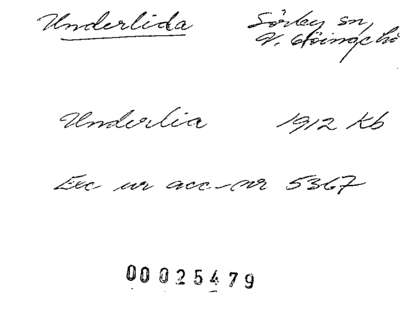 Underlida Sörby sn,
V. Göinge hd
Underlia 1912 Kb
Exc ur acc-nr 5367
00025479